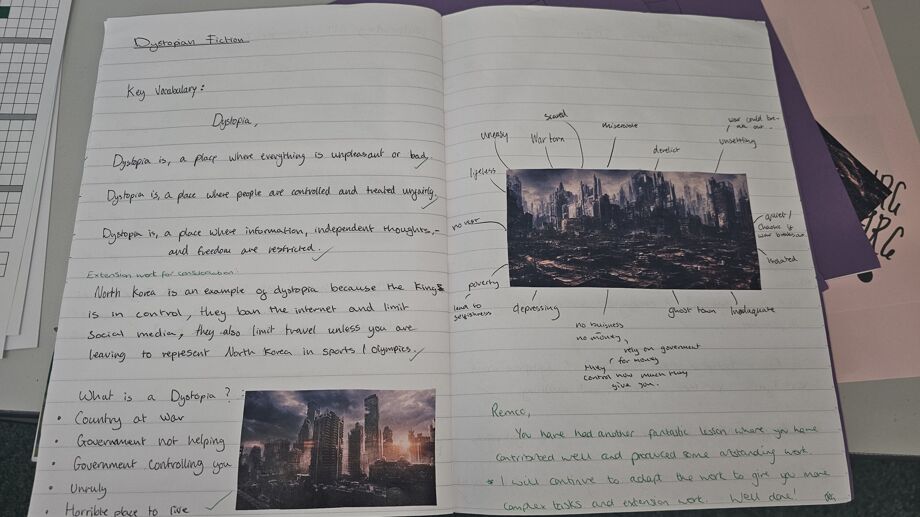 Dystopian Fiction
Key Vocabulary:
Dystopia,
Dystopia is, a place where everything is unpleasant or bad.
Dystopia is, a place where people are controlled and treated unfairly.
Dystopia is, a place where information, independent thoughts,
and freedom are restricted.
Extension work for consideration:
North Korea is an example of dystopia because the King
is in control, they ban the internet and limit
social media, they also limit travel unless you are
leaving to represent North Korea in sports / Olympics.
What is a Dystopia?
• Country at war
• Government not helping
• Government controlling you
• Unruly
• Horrible place to live
scared
uneasy
War torn
miserable
derelict
war could bre-
ak out..
unsettling
lifeless
no rest
quiet /
Chaotic if
war breaks out
isolated
poverty
lead to
selfishness
depressing
no buisness
no money,
rely on government
for money
they
control how much they
give you.
ghost town
Inadequate
Remco,
You have had another fantastic lesson where you have
contributed well and produced some outstanding work.
* I will continue to adapt the work to give you more
complex tasks and extension work. Well done!
ARG
ARG